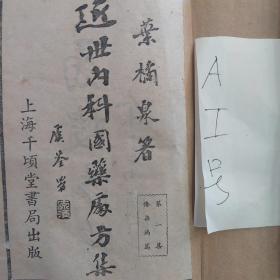 葉橘泉著
近世內科國藥處方集
第一集
傳染病篇
上海千頃堂書局出版
AI号